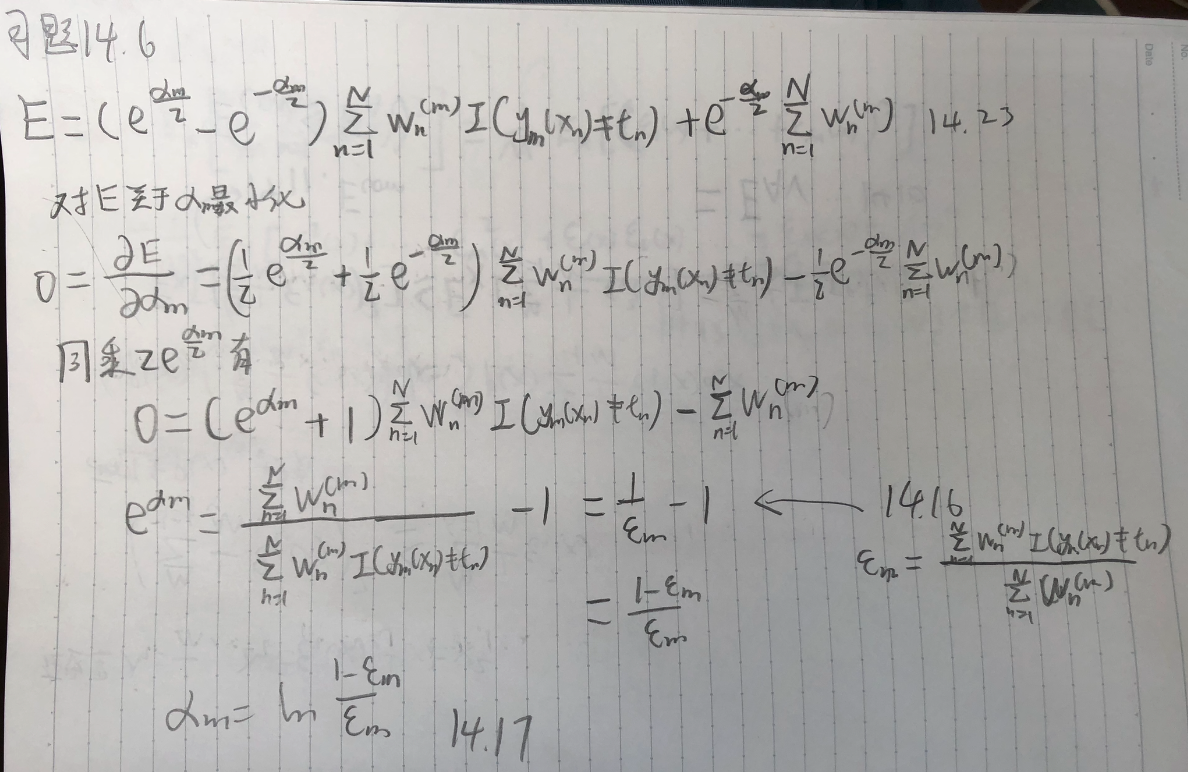 习题14.6
E = (e^{αm/2} - e^{-αm/2}) Σ_{n=1}^{N} w_n^{(m)} I(y_m(x_n) ≠ t_n) + e^{-αm/2} Σ_{n=1}^{N} w_n^{(m)} 14.23
对E关于αm最小化
0 = ∂E/∂αm = (1/2 e^{αm/2} + 1/2 e^{-αm/2}) Σ_{n=1}^{N} w_n^{(m)} I(y_m(x_n) ≠ t_n) - 1/2 e^{-αm/2} Σ_{n=1}^{N} w_n^{(m)}
同乘2e^{αm/2}有
0 = (e^{αm} + 1) Σ_{n=1}^{N} w_n^{(m)} I(y_m(x_n) ≠ t_n) - Σ_{n=1}^{N} w_n^{(m)}
e^{αm} = (Σ_{n=1}^{N} w_n^{(m)}) / (Σ_{n=1}^{N} w_n^{(m)} I(y_m(x_n) ≠ t_n)) - 1 = 1/εm - 1 ← 14.16
εm = (Σ_{n=1}^{N} w_n^{(m)} I(y_m(x_n) ≠ t_n)) / (Σ_{n=1}^{N} w_n^{(m)})
= (1-εm)/εm
αm = ln (1-εm)/εm 14.17
No.
Date